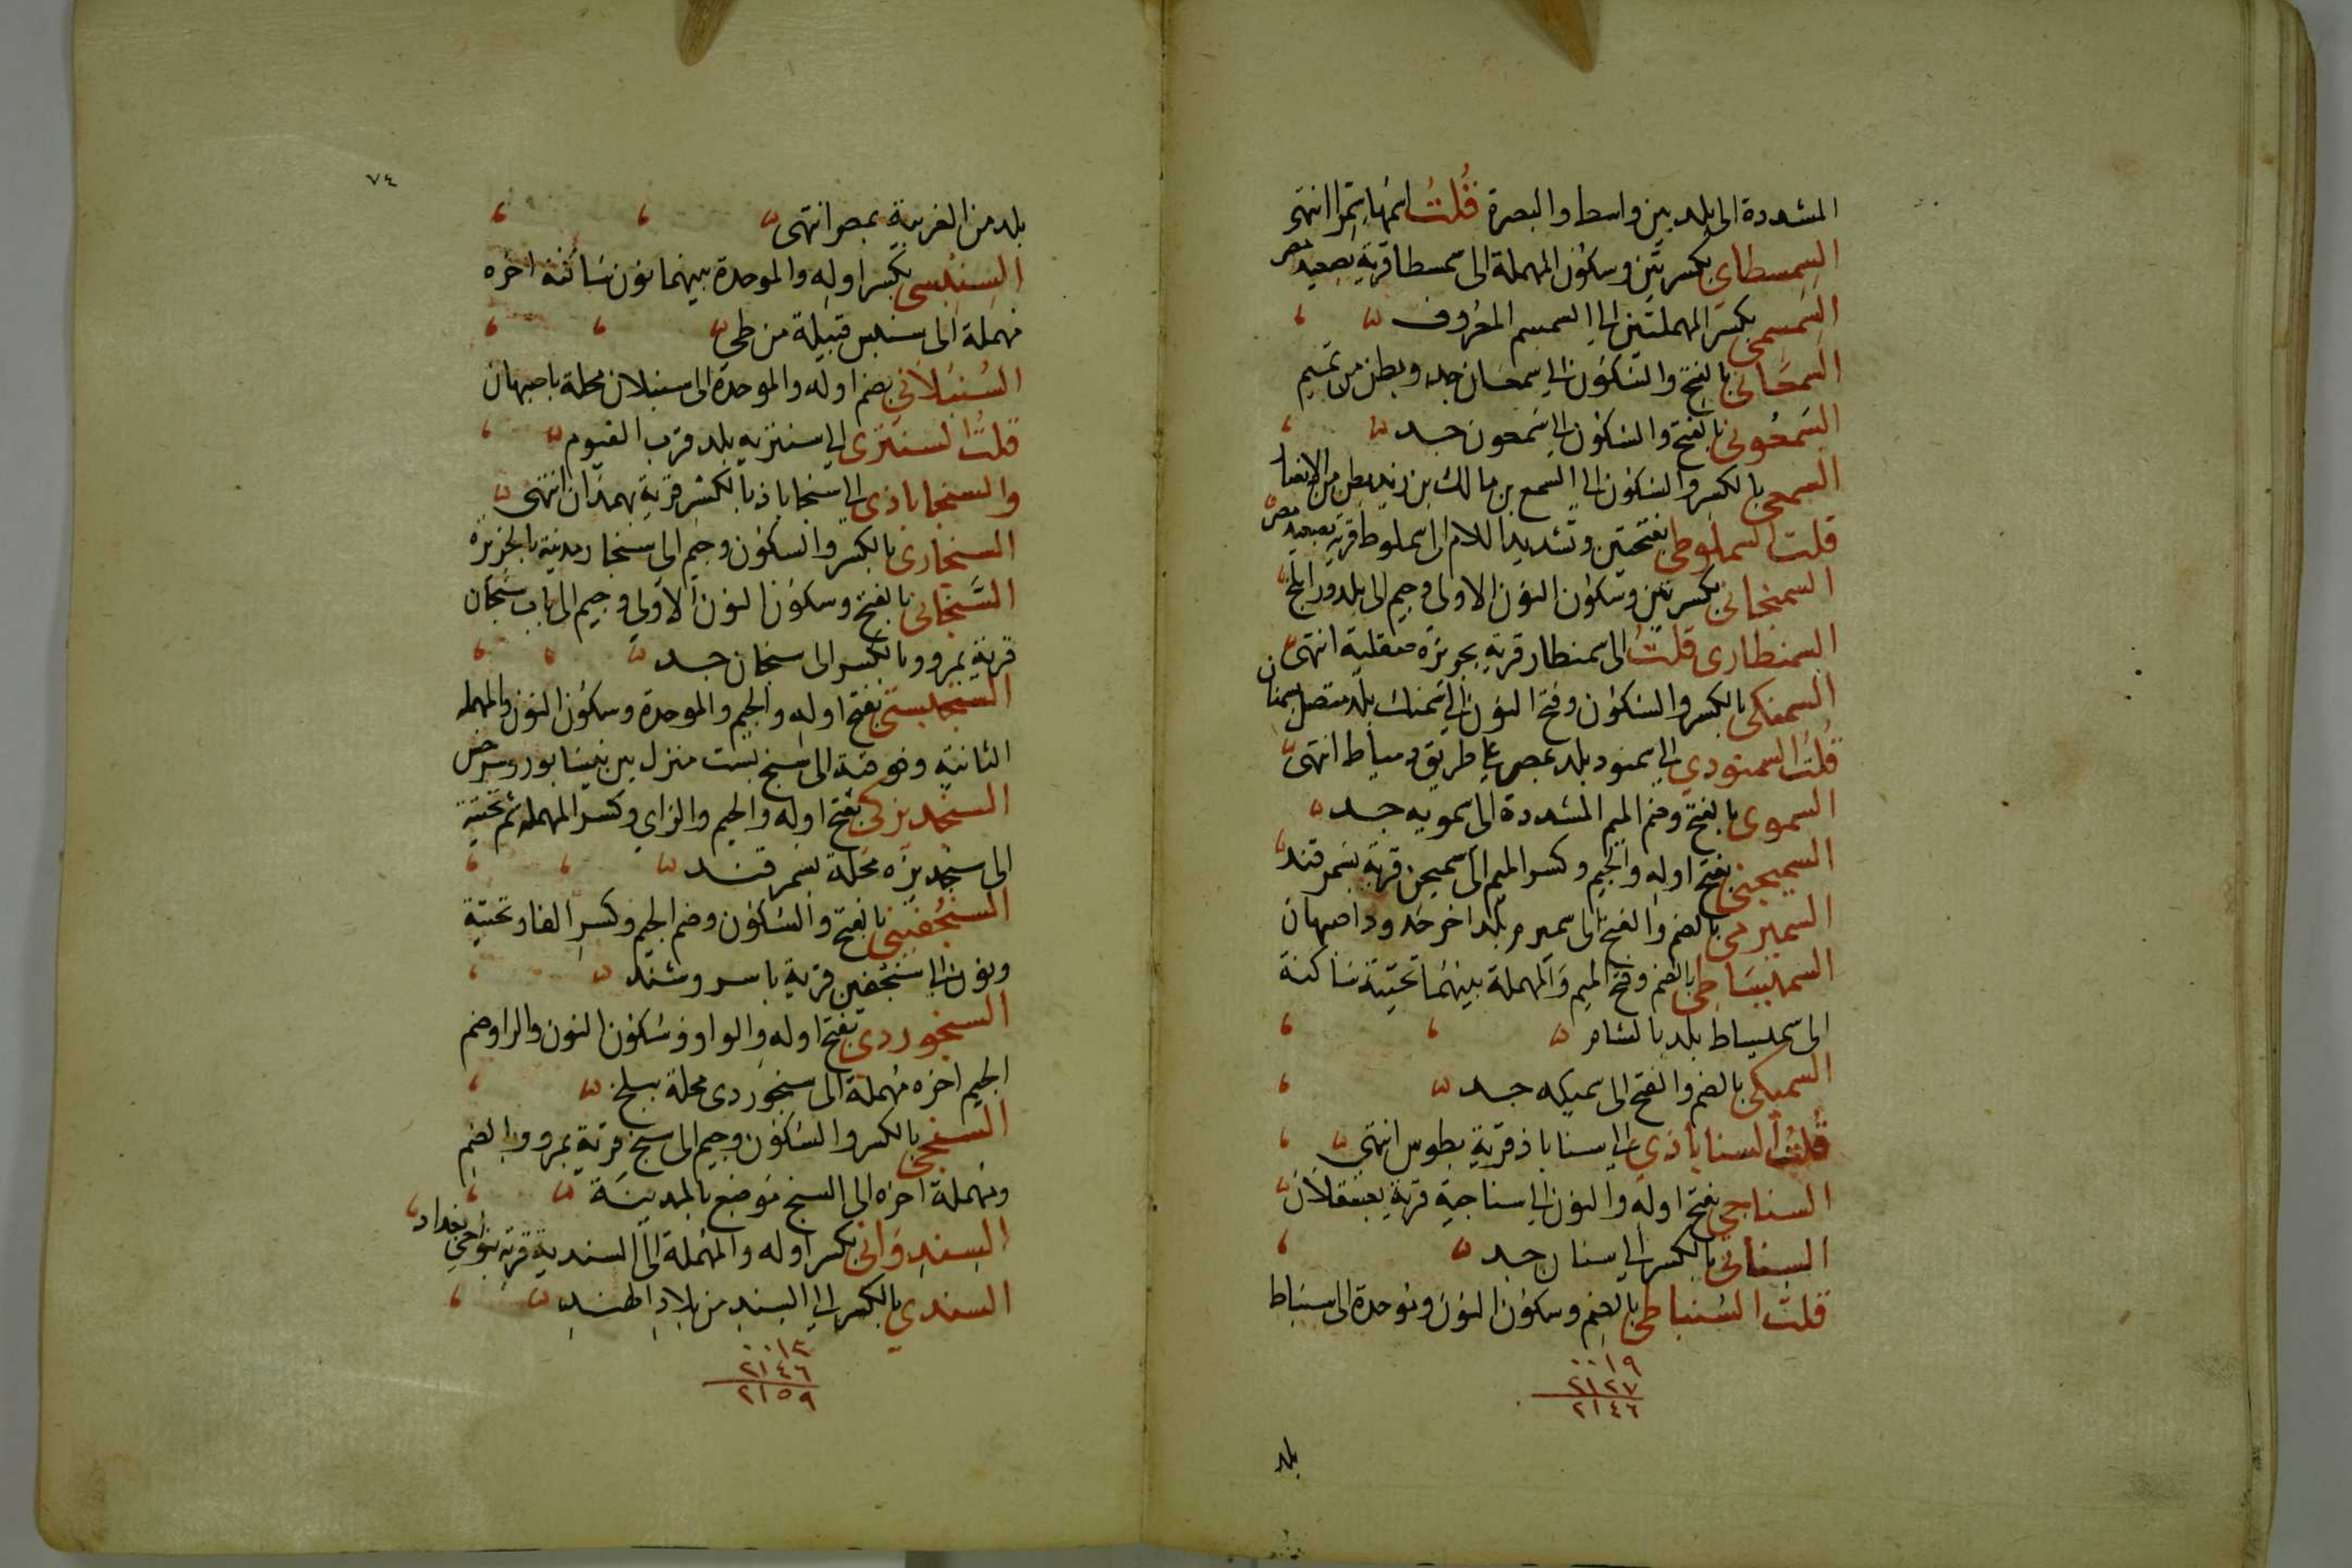 المشددة الى بلد بين واسط والبصرة قُلتُ اسمها سِمّر انتهى
السِمِسطاى بكسرتين وسكون المهملة الى سمسطا قرية بصعيد مصر
السِمسِمى بكسر المهملتين الى السمسم المعروف
السَمعَانى بالفتح والسكون الى سمعان جد وبطن من تميم
السَمعُونى بالفتح والسكون الى سَمعون جد
السمعى بالكسر والسكون الى السمع بن مالك بن زيد بطن من الانصار
قلت السملوطى بفتحتين وتشديد اللام الى سملوط قرية بصعيد مصر
السمنجانى بكسرتين وسكون النون الاولى وجيم الى بلد ورا بلخ
السمنطارى قلتُ الى سمنطار قرية بجزيرة صقلية انتهى
السمنكى بالكسر والسكون وفتح النون الى سمنك بلد متصل بسمنان
قُلتُ السمنودي الى سمنود بلد بمصر على طريق دمياط انتهى
السموى بالفتح وضم الميم المشددة الى سمويه جد
السميجنى بفتح اوله والجيم وكسر الميم الى سميجن قرية بسمرقند
السميرمى بالضم والفتح الى سميرم بلد اخر حدود اصبهان
السميسَاطى بالضم وفتح الميم والمهملة بينهما تحتية ساكنة
الى سميساط بلد بالشام
السميكى بالضم والفتح الى سميكه جد
قُلتُ السناباذي الى سناباذ قرية بطوس انتهى
السناجي بفتح اوله والنون الى سناجية قرية بعسقلان
السنانى بالكسر الى سنان جد
قلتُ السُنباطى بالضم وسكون النون وموحدة الى سنباط
٠٠١٩
٢١٢٧
٢١٤٦
بلد
٧٤
بلد من الغربية بمصر انتهى
السِنبسى بكسر اوله والموحدة بينهما نون ساكنة اخره
مهملة الى سنبس قبيلة من طى
السُنبُلانى بضم اوله والموحدة الى سنبلان محلة باصبهان
قلتُ السنتزى الى سنتزيه بلد قرب الفيوم
والسنجاباذى الى سنجاباذ بالكسر قرية بهمدان انتهى
السنجارى بالكسر والسكون وجيم الى سنجار مدينة بالجزيرة
السَنجانى بالفتح وسكون النون الاولى وجيم الى باب سنجان
قرية بمرو وبالكسر الى سنجان جد
السنجبستى بفتح اوله والجيم والموحدة وسكون النون والمهملة
الثانية وفوقية الى سنج بست منزل بين نيسابور وسرخس
السنجديزكى بفتح اوله والجيم والزاي وكسر المهملة ثم تحتية
الى سنجديزه محلة بسمرقند
السنجُفينى بالفتح والسكون وضم الجيم وكسر الفا وتحتية
ونون الى سنجفين قرية باسروشنه
السنجوردى بفتح اوله والواو وسكون النون والرا وضم
الجيم اخره مهملة الى سنجوردى محلة ببلخ
السنجى بالكسر والسكون وجيم الى سنج قرية بمرو وبالضم
ومهملة اخره الى السنح موضع بالمدينة
السندوانى بكسر اوله والمهملة الى السندية قرية بنواحى بغداد
السندي بالكسر الى السند من بلاد الهند
٠٠١٣
٢١٤٦
٢١٥٩